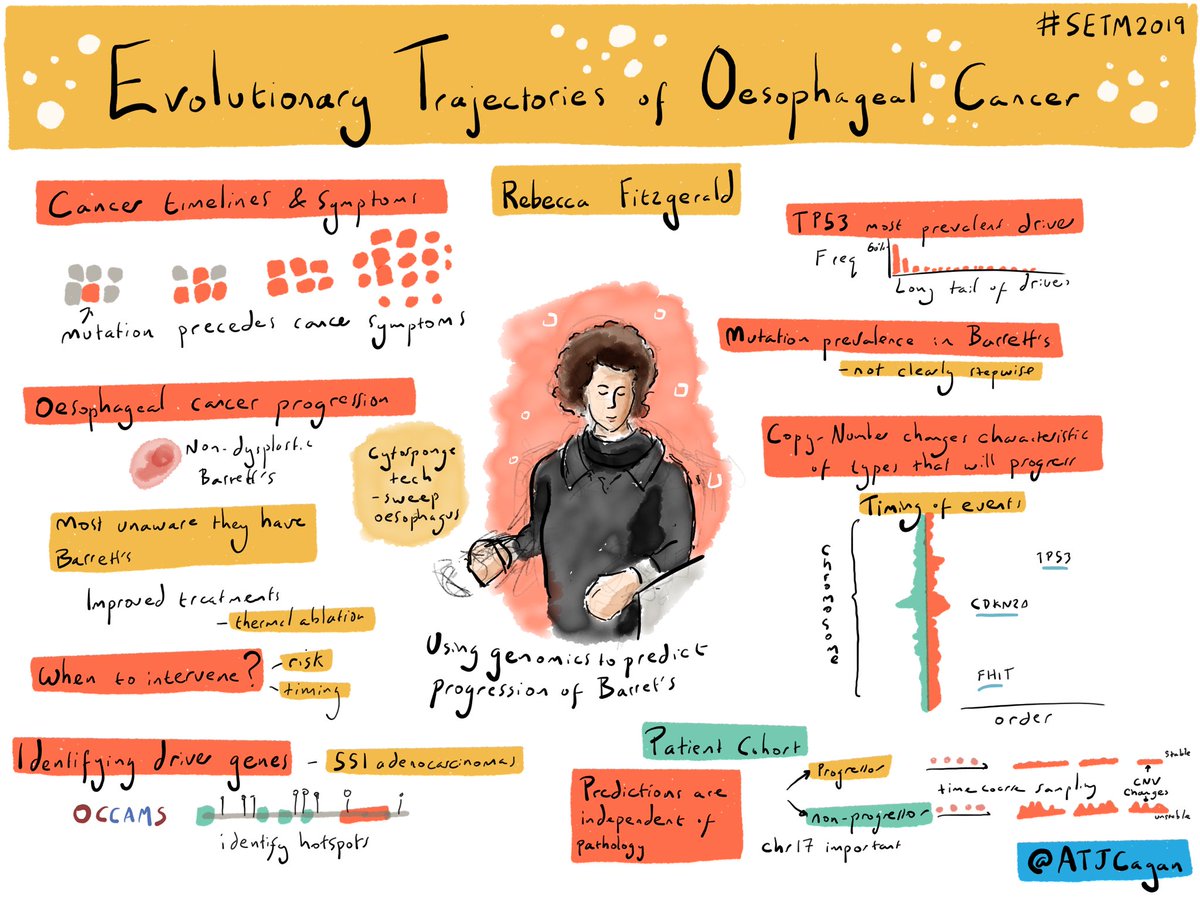 #SETM2019
Evolutionary Trajectories of Oesophageal Cancer
Cancer timelines & Symptoms
mutation precedes cance symptoms
Oesophageal cancer progression
Non-dysplastic
Barrett's
Most unaware they have
Barrett's
Improved treatments
- thermal ablation
When to intervene?
- risk
- timing
Identifying driver genes - 551 adenocarcinomas
OCCAMS
identify hotspots
Rebecca Fitzgerald
Cytosponge
tech
- sweep
oesophagus
Using genomics to predict
progression of Barret's
TP53 most prevalent driver
Freq
60%
Long tail of drivers
Mutation prevalence in Barrett's
- not clearly stepwise
Copy-Number changes characteristic
of types that will progress
Timing of events
Chromosome
TP53
CDKN2A
FHIT
order
Patient Cohort
Predictions are
independent of
pathology
Progressor
non-progressor
chr17 important
time coarse sampling
stable
CNV
Changes
unstable
@ATJCagan